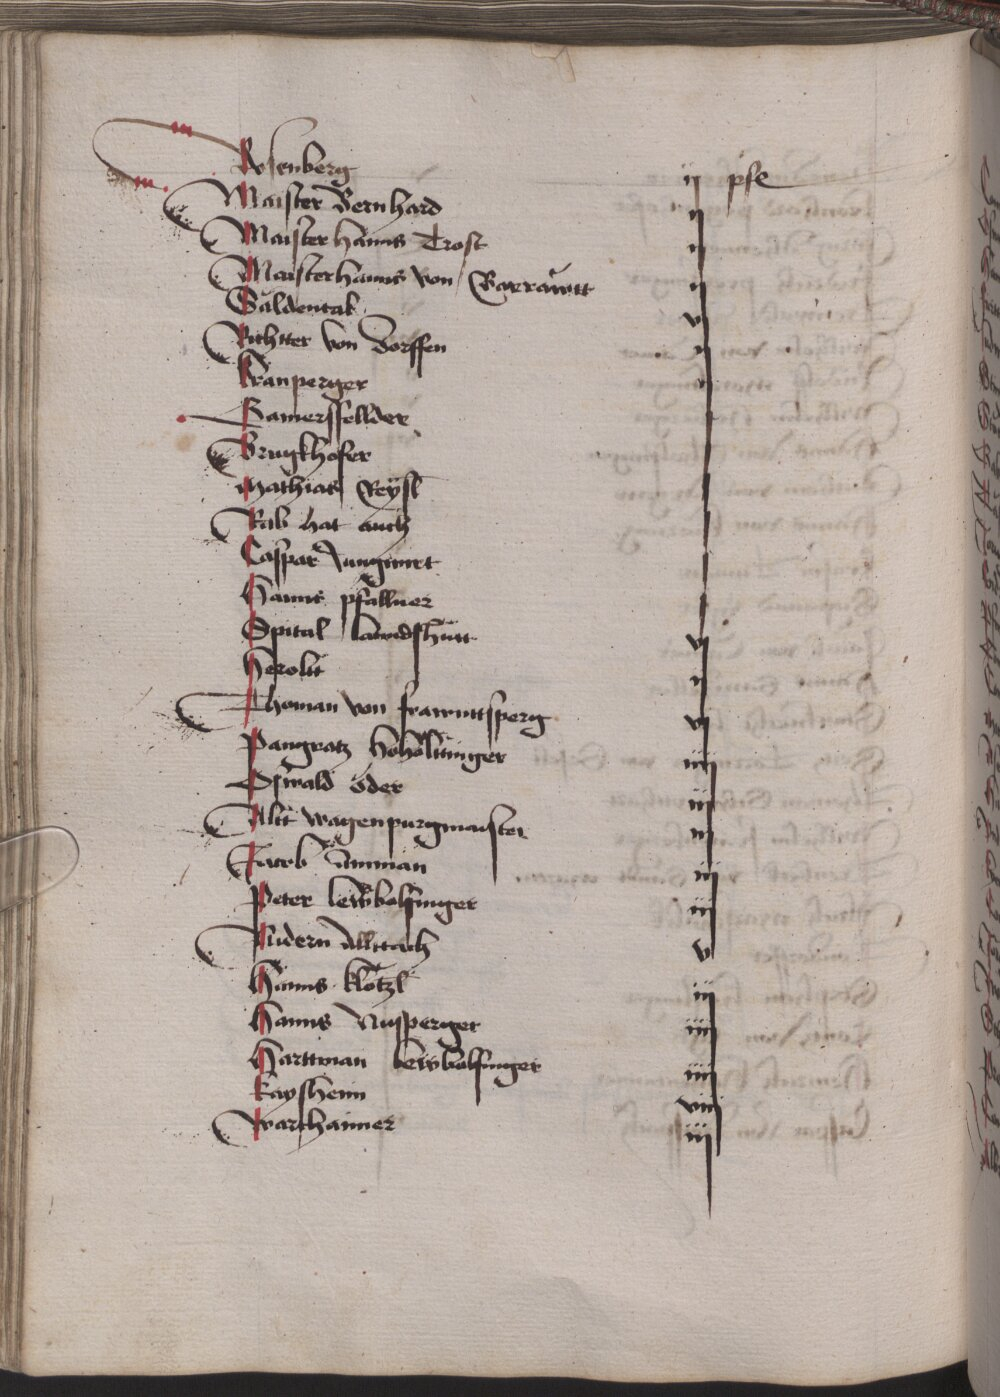 Rosenberg ij pfe
Maister Bernhard ij
Maister Hanns Trost ij
Maister hanns von Barrawtt ij
Galdentak vj
Richtter von Dorffen ij
Kranperger j
Hamersfellder j
Brugkhofer j
Mathias Reysl j
Kab hat auch j
Caspar Aungimet j
Hanns pfallner j
Spital lanndshutt vj
Heroltt ij
Thoman von frawnttsperg vj
Pangratz Hoholttinger iiij
Oswald Öder iij
Allt wagenpurgmaister iij
Jacob Amman iij
Peter lewbolfinger iij
Nidern Allttach v
Hanns Klötzl iij
Hanns Nusperger iiij
Harttman lewbolfinger iiij
Kaysheim viij
Warthaimer iij